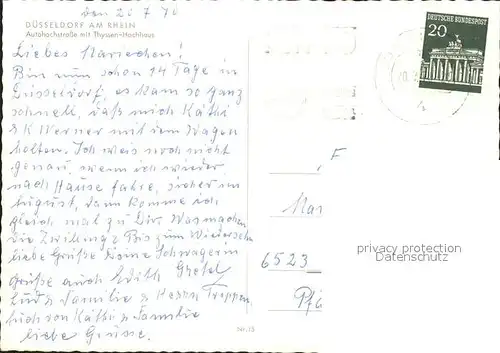 den 26 7 70
DÜSSELDORF AM RHEIN
Autohochstraße mit Thyssen-Hochhaus
Liebes Mariechen!
Bin nun schon 14 Tage in
Düsseldorf, es kam so ganz
schnell, daß mich Käthi
& K Werner mit dem Wagen
holten. Ich weis noch nicht
genau, wenn ich wieder
nach Hause fahre, sicher im
August, dann komme ich
gleich mal zu Dir. Was machen
die Zwillinge Bis zum Wiedersehn
liebe Grüße Deine Schwägerin
Grüße auch Edith Gretel
& Familie & Herrn
von Käthi & Familie
liebe Grüsse.
DEUTSCHE BUNDESPOST
20
F
Mar
6523
Pfe
privacy protection
Datenschutz
Nr. 13